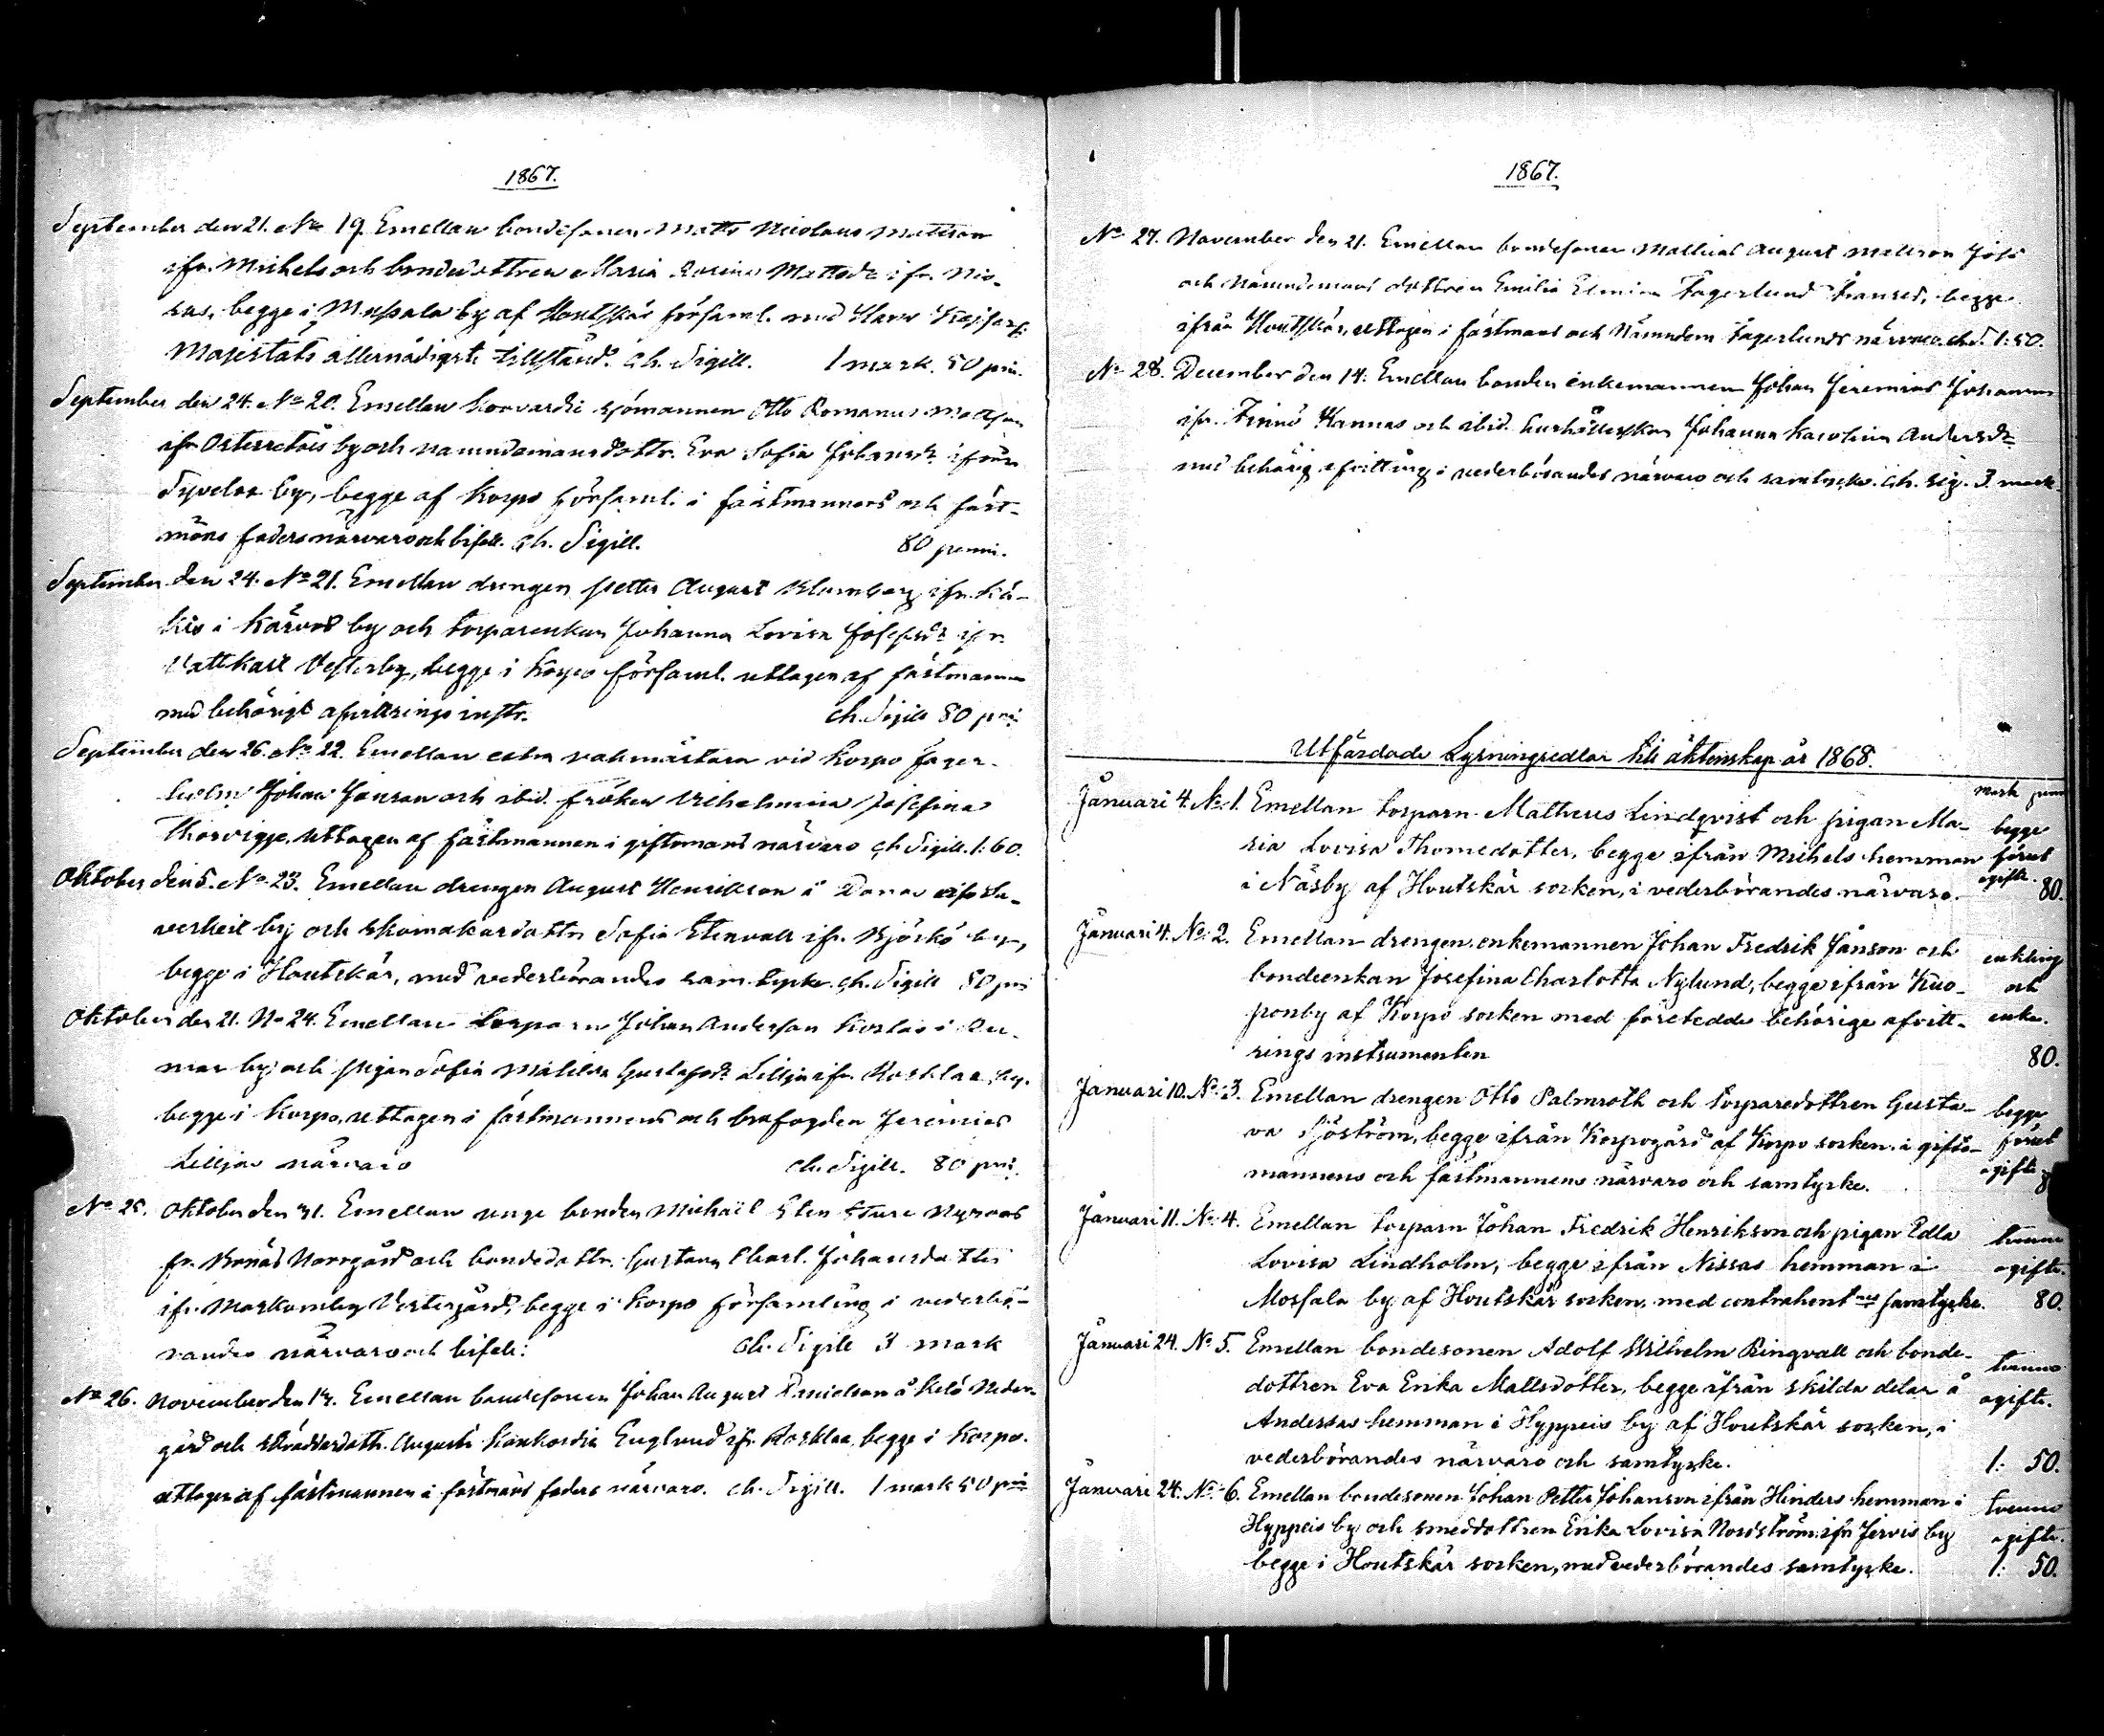 1867.
September den 21. No 19. Emellan bondesonen Matts Nicolaus Mattson
ifr. Michels och bondedottren Maria Rosina Mattsdr ifr. Nis-
sas, begge i Mossala by af Houtskär församl. med Hans Kejserl:
Majestäts allernådigste tillstånd. Ch. Sigill. 1 mark. 50 pni.
September den 24. No 20. Emellan koovardie sjömannen Otto Romanus
ifr. Österretais by och nämndemansdottr. Eva Sofia Johansdr. ifrån
by, begge af Korpo församl. i fästmannens och fäst-
möns faders närvaro och bifall. Ch. Sigill. 80 penni.
September den 24. No 21. Emellan drengen Petter August Blomberg ifr.
i Kärvos by och torparenkan Johanna Lovisa Josefsdr ifr.
Vattkast Vesterby, begge i Korpo församl. uttagen af fästmannen
med behörigt afvittrings instr. Ch. Sigill 80 pni.
September den 26. No 22. Emellan extra vakmästaren vid Korpo Fager-
holm Johan Janson och ibid. fröken Vilhelmina Josefina
uttagen af fästmannen i giftomans närvaro Ch. Sigill. 1: 60.
Oktober den 5. No 23. Emellan drengen August Henrikson å
by och skomakardottr Sofia Stenvall ifr. Björkö by,
begge i Houtskär, med vederbörandes samtycke. Ch. Sigill 80 pni
Oktober den 21. No 24. Emellan torparn Johan Anderson i Ru-
mar by och pigan Sofia Matilda Gustafsdr Lillja ifr. Rosklax by.
begge i Korpo, uttagen i fästmannens och brofogden Jeremias
Lilljas närvaro Ch. Sigill. 80 pni.
No 25. Oktober den 31. Emellan unge bonden Michaël Sten Sture Nyroos
fr. Norrgård och bondedottr. Gustava Charl. Johansdotter
ifr. Markomby Vestergård, begge i Korpo församling i vederbö-
randes närvaro och bifall: Ch. Sigill 3 mark
No 26. November den 14. Emellan bondesonen Johan August Danielson å Retö Neder-
gård och skräddardottr. Augusta Konkordia Englund ifr. Rosklax, begge i Korpo.
uttagen af fästmannen i fästmöns faders närvaro. Ch. Sigill. 1 mark 50 pni
1867.
No 27. November den 21. Emellan bondesonen Mathias August Mattson
och nämndemans dottren Emilia Elmina Fagerlund Fransdr, begge
ifrån Houtskär, uttagen i fästmans och Nämndem Fagerlunds närvaro. Ch. S. 1: 50.
No 28. December den 14: Emellan bonden enkemannen Johan Jeremias Johanson
ifr. Finnö Hannas och ibid. hushållerskan Johanna Karolina Andersdr
med behörig afvittring i vederbörandes närvaro och samtycke. Ch. Sig. 3 mark.
Utfärdade Lysningsedlar till äktenskap år 1868.
mark penni
Januari 4. No: 1. Emellan torparn Matheus Lindqvist och pigan Ma- begge
ria Lovisa Thomedotter, begge ifrån Mihels hemman förut
i Näsby af Houtskär socken, i vederbörandes närvaro. ogifte. 80.
Januari 4. No: 2. Emellan drengen, enkemannen Johan Fredrik Janson och enkling
bondeenkan Josefina Charlotta Nylund, begge ifrån Kuo- och
ponby af Korpo socken med företedde behörige afvitt- enka.
rings instrumenten 80.
Januari 10. No: 3. Emellan drengen Otto Palmroth och torparedottren Gusta- begge
va Sjöström, begge ifrån Korpogård af Korpo socken. i gifto- förut
mannens och fästmannens närvaro och samtycke. ogifte
Januari 11. No: 4. Emellan torparn Johan Fredrik Henrikson och pigan Edla tvenne
Lovisa Lindholm, begge ifrån Nissas hemman i ogifte.
Mosfala by af Houtskär socken, med contrahentnes samtycke. 80.
Januari 24. No: 5. Emellan bondesonen Adolf Wilhelm Ringvall och bonde- tvenne
dottren Eva Erika Mattsdotter, begge ifrån skilda delar å ogifte.
Anderssas hemman i Hyppeis by af Houtskär socken, i
vederbörandes närvaro och samtycke. 1: 50.
Januari 24. No: 6. Emellan bondesonen Johan Petter Johanson ifrån Hinders hemman i tvenne
Hyppeis by och smeddottren Erika Lovisa Nordström ifr Jervis by ogifte.
begge i Houtskär socken, med vederbörandes samtycke. 1: 50.